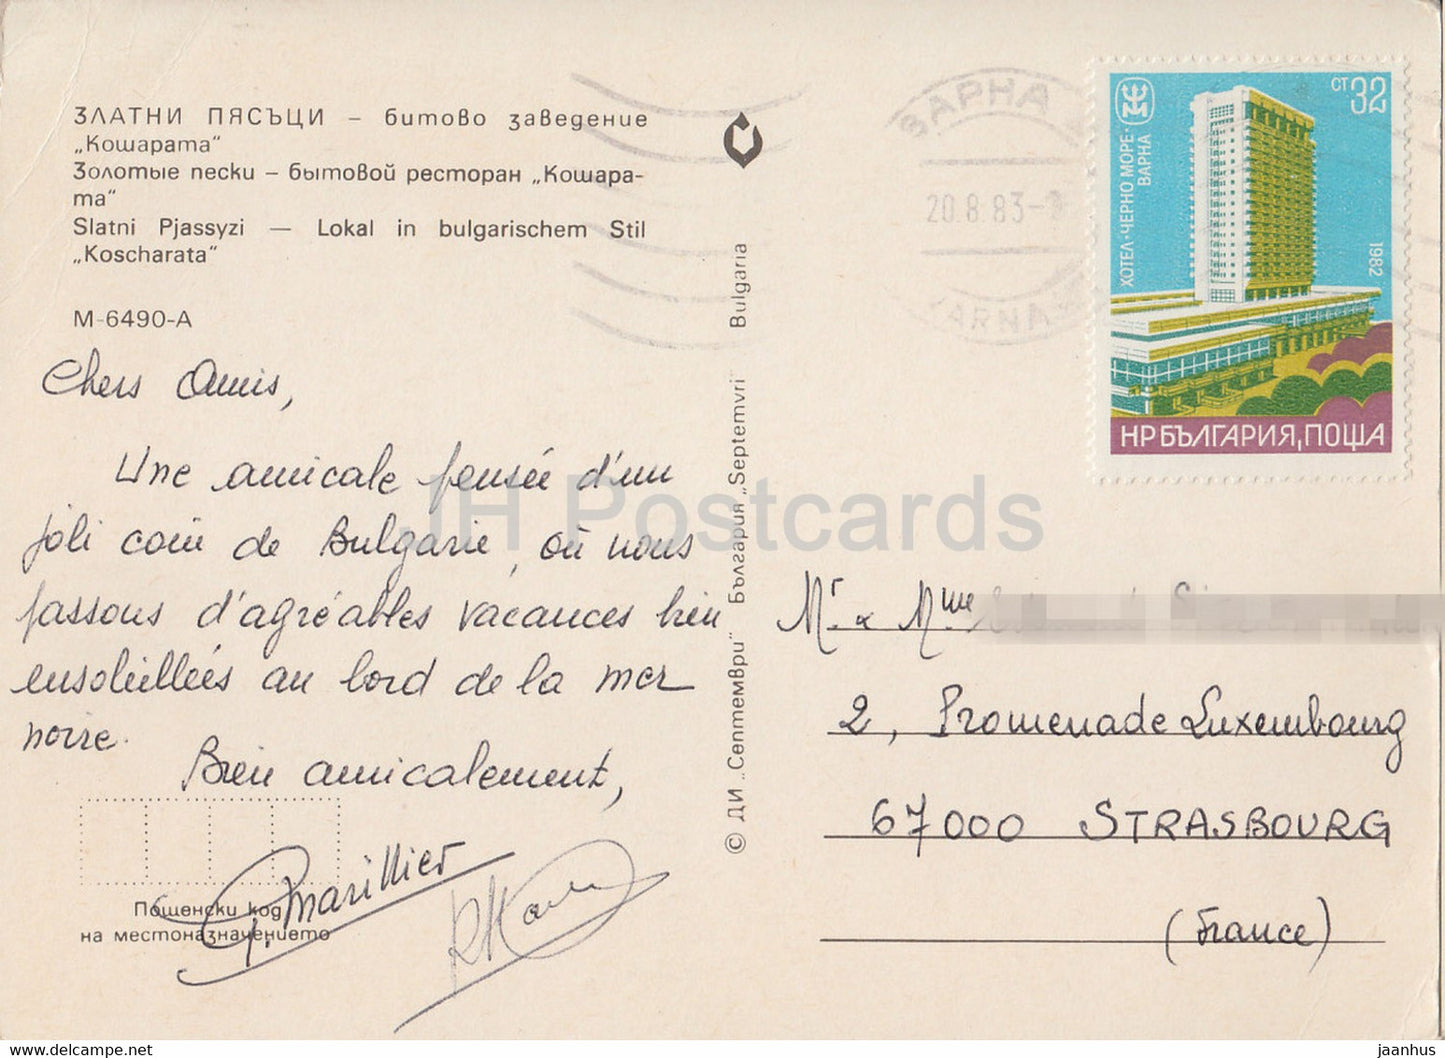 ЗЛАТНИ ПЯСЪЦИ – битово заведение
„Кошарата“
Золотые пески – бытовой ресторан „Кошара-
та“
Slatni Pjassyzi — Lokal in bulgarischem Stil
„Koscharata“
М-6490-А
Chers Amis,
Une amicale pensée d'un
joli coin de Bulgarie, où nous
passons d'agréables vacances bien
ensoleillées au bord de la mer
noire.
Bien amicalement,
G. Marillier
Пощенски код
на местоназначението
© ДИ „Септември“ България „Septemvri“ Bulgaria
ВАРНА
20.8.83
VARNA
ст 32
ХОТЕЛ · ЧЕРНО МОРЕ ·
ВАРНА
1982
НР БЪЛГАРИЯ, ПОЩА
Mr & Mme
2, Promenade Luxembourg
67000 STRASBOURG
(France)
JH Postcards
delcampe.net
jaanhus